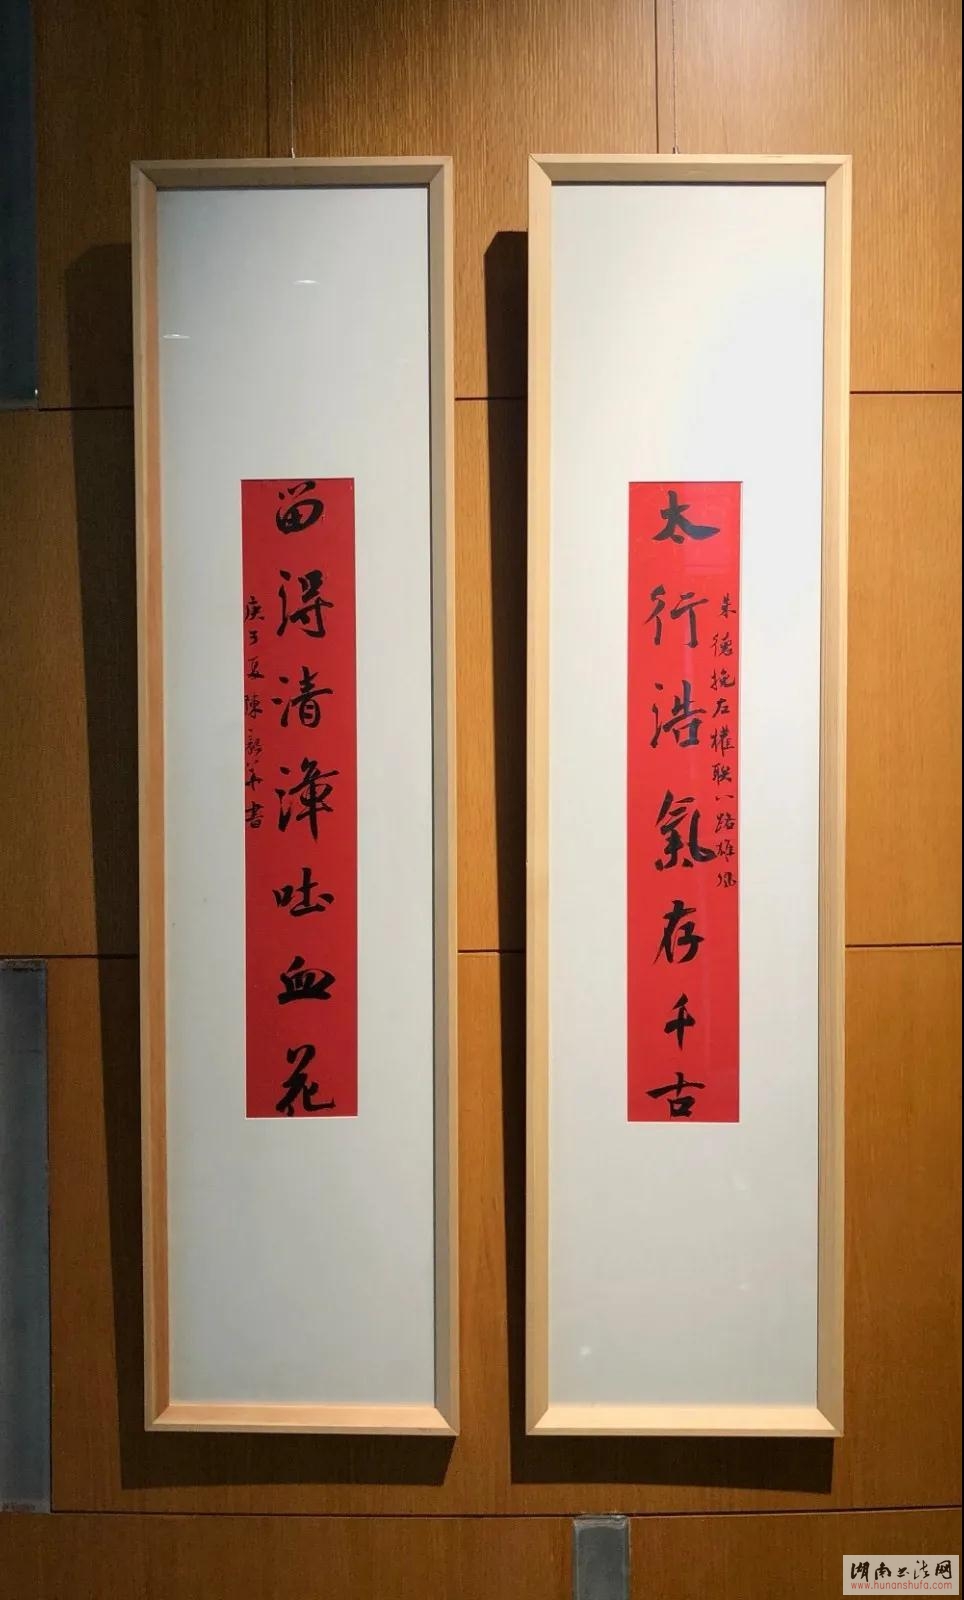 太行浩氣存千古
朱德挽左權联八路雄風
留得清漳吐血花
庚子夏陳新华書
湖南书法网
www.hunanshufa.com